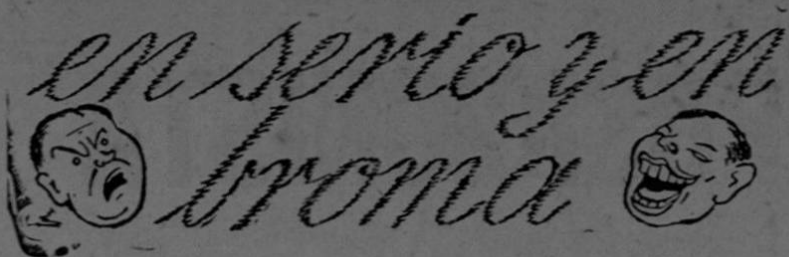 en serio y en
broma